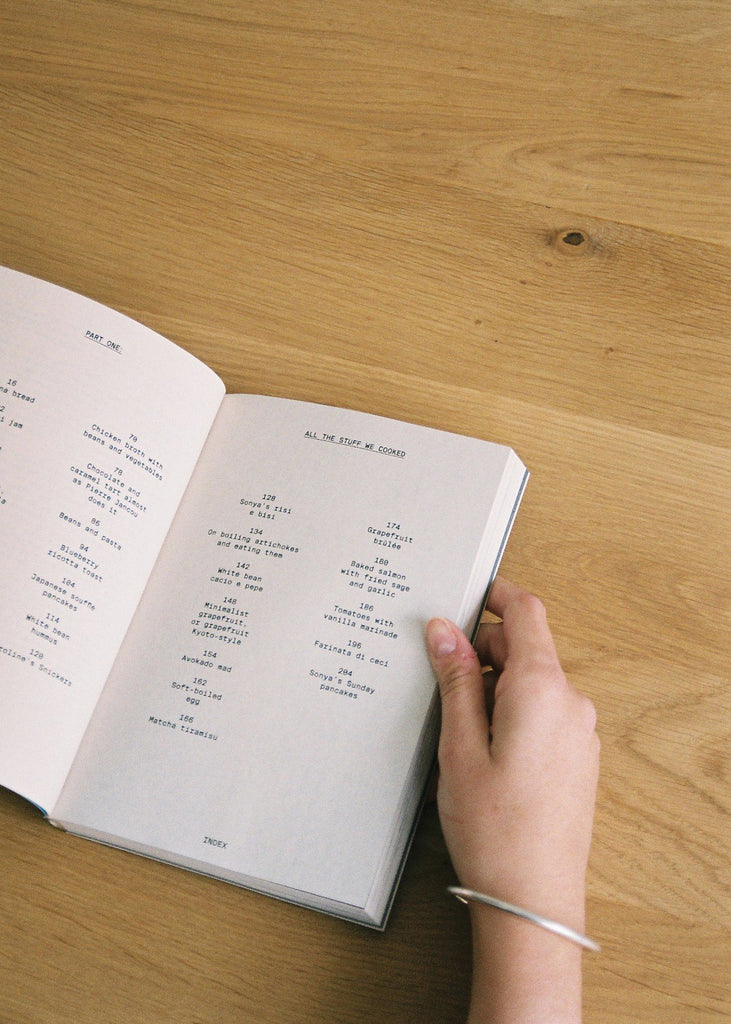 PART ONE:
16
na bread
2
i jam
70
Chicken broth with
beans and vegetables
78
Chocolate and
caramel tart almost
as Pierre Jancou
does it
86
Beans and pasta
94
Blueberry
ricotta toast
104
Japanese souffle
pancakes
114
White bean
hummus
120
roline's Snickers
ALL THE STUFF WE COOKED
128
Sonya's risi
e bisi
134
On boiling artichokes
and eating them
142
White bean
cacio e pepe
148
Minimalist
grapefruit,
or grapefruit
Kyoto-style
154
Avokado mad
162
Soft-boiled
egg
166
Matcha tiramisu
174
Grapefruit
brûlée
180
Baked salmon
with fried sage
and garlic
186
Tomatoes with
vanilla marinade
196
Farinata di ceci
204
Sonya's Sunday
pancakes
INDEX